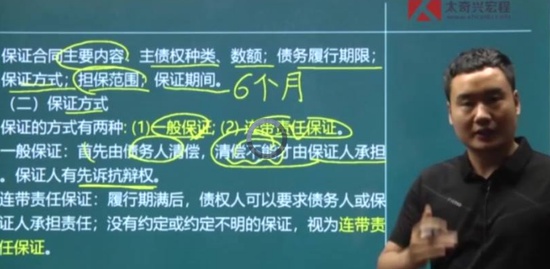 太奇兴宏程
保证合同主要内容：主债权种类、数额；债务履行期限；
保证方式；担保范围；保证期间。 6个月
（二）保证方式
保证的方式有两种：(1)一般保证；(2)连带责任保证。
一般保证：首先由债务人清偿，清偿不能才由保证人承担
。保证人有先诉抗辩权。
连带责任保证：履行期满后，债权人可以要求债务人或保
证人承担责任；没有约定或约定不明的保证，视为连带责
任保证。